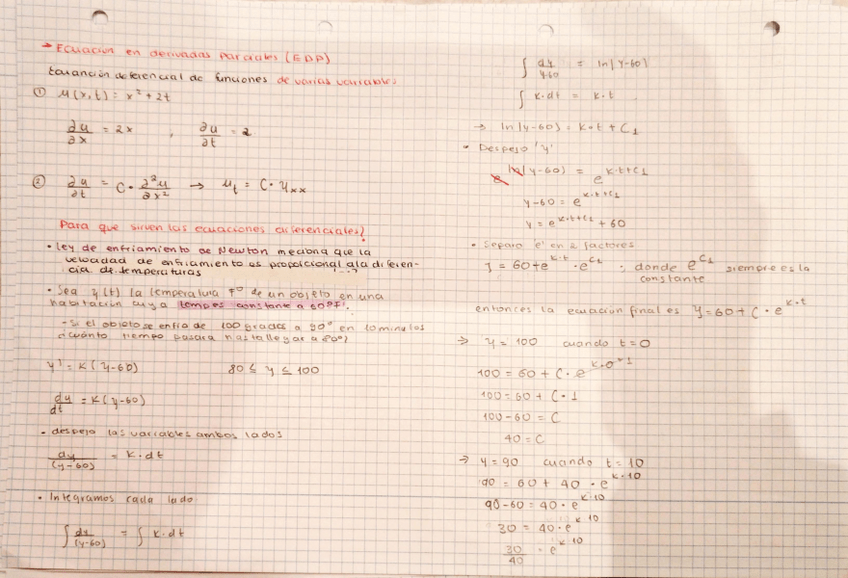 → Ecuación en derivadas parciales (EDP)
Ecuanción deferencial de funciones de varias variables
① u(x,t) = x² + 2t
∂u/∂x = 2x ; ∂u/∂t = 2
② ∂u/∂t = C · ∂²u/∂x² → u_t = C · u_xx
Para que sirven las ecuaciones diferenciales?
• Ley de enfriamiento de Newton meciona que la
velocidad de enfriamiento es proporcional a la diferen-
cia de temperaturas
• Sea y(t) la temperatura F° de un objeto en una
habitación cuya temp es constante a 60°F.
- Si el objeto se enfria de 100 grados a 90° en 10 minutos
¿cuánto tiempo pasara hasta llegar a 80°?
y' = K(y-60) 80 ≤ y ≤ 100
dy/dt = K(y-60)
• despejo las variables ambos lados
dy/(y-60) = K·dt
• Integramos cada lado
∫ dy/(y-60) = ∫ K·dt
∫ dy/y-60 = ln|y-60|
∫ K·dt = K·t
→ ln|y-60| = K·t + C₁
• Despejo 'y'
e^ln(y-60) = e^K·t+C₁
y-60 = e^K·t+C₁
y = e^K·t+C₁ + 60
• Separo 'e' en 2 factores
y = 60 + e^K·t · e^C₁ ; donde e^C₁ siempre es la
constante
entonces la ecuación final es y = 60 + C · e^K·t
⇒ y = 100 cuando t = 0
100 = 60 + C · e^K·0 = 1
100 = 60 + C · 1
100 - 60 = C
40 = C
⇒ y = 90 cuando t = 10
90 = 60 + 40 · e^K·10
90 - 60 = 40 · e^K·10
30 = 40 · e^K·10
30/40 = e^K·10